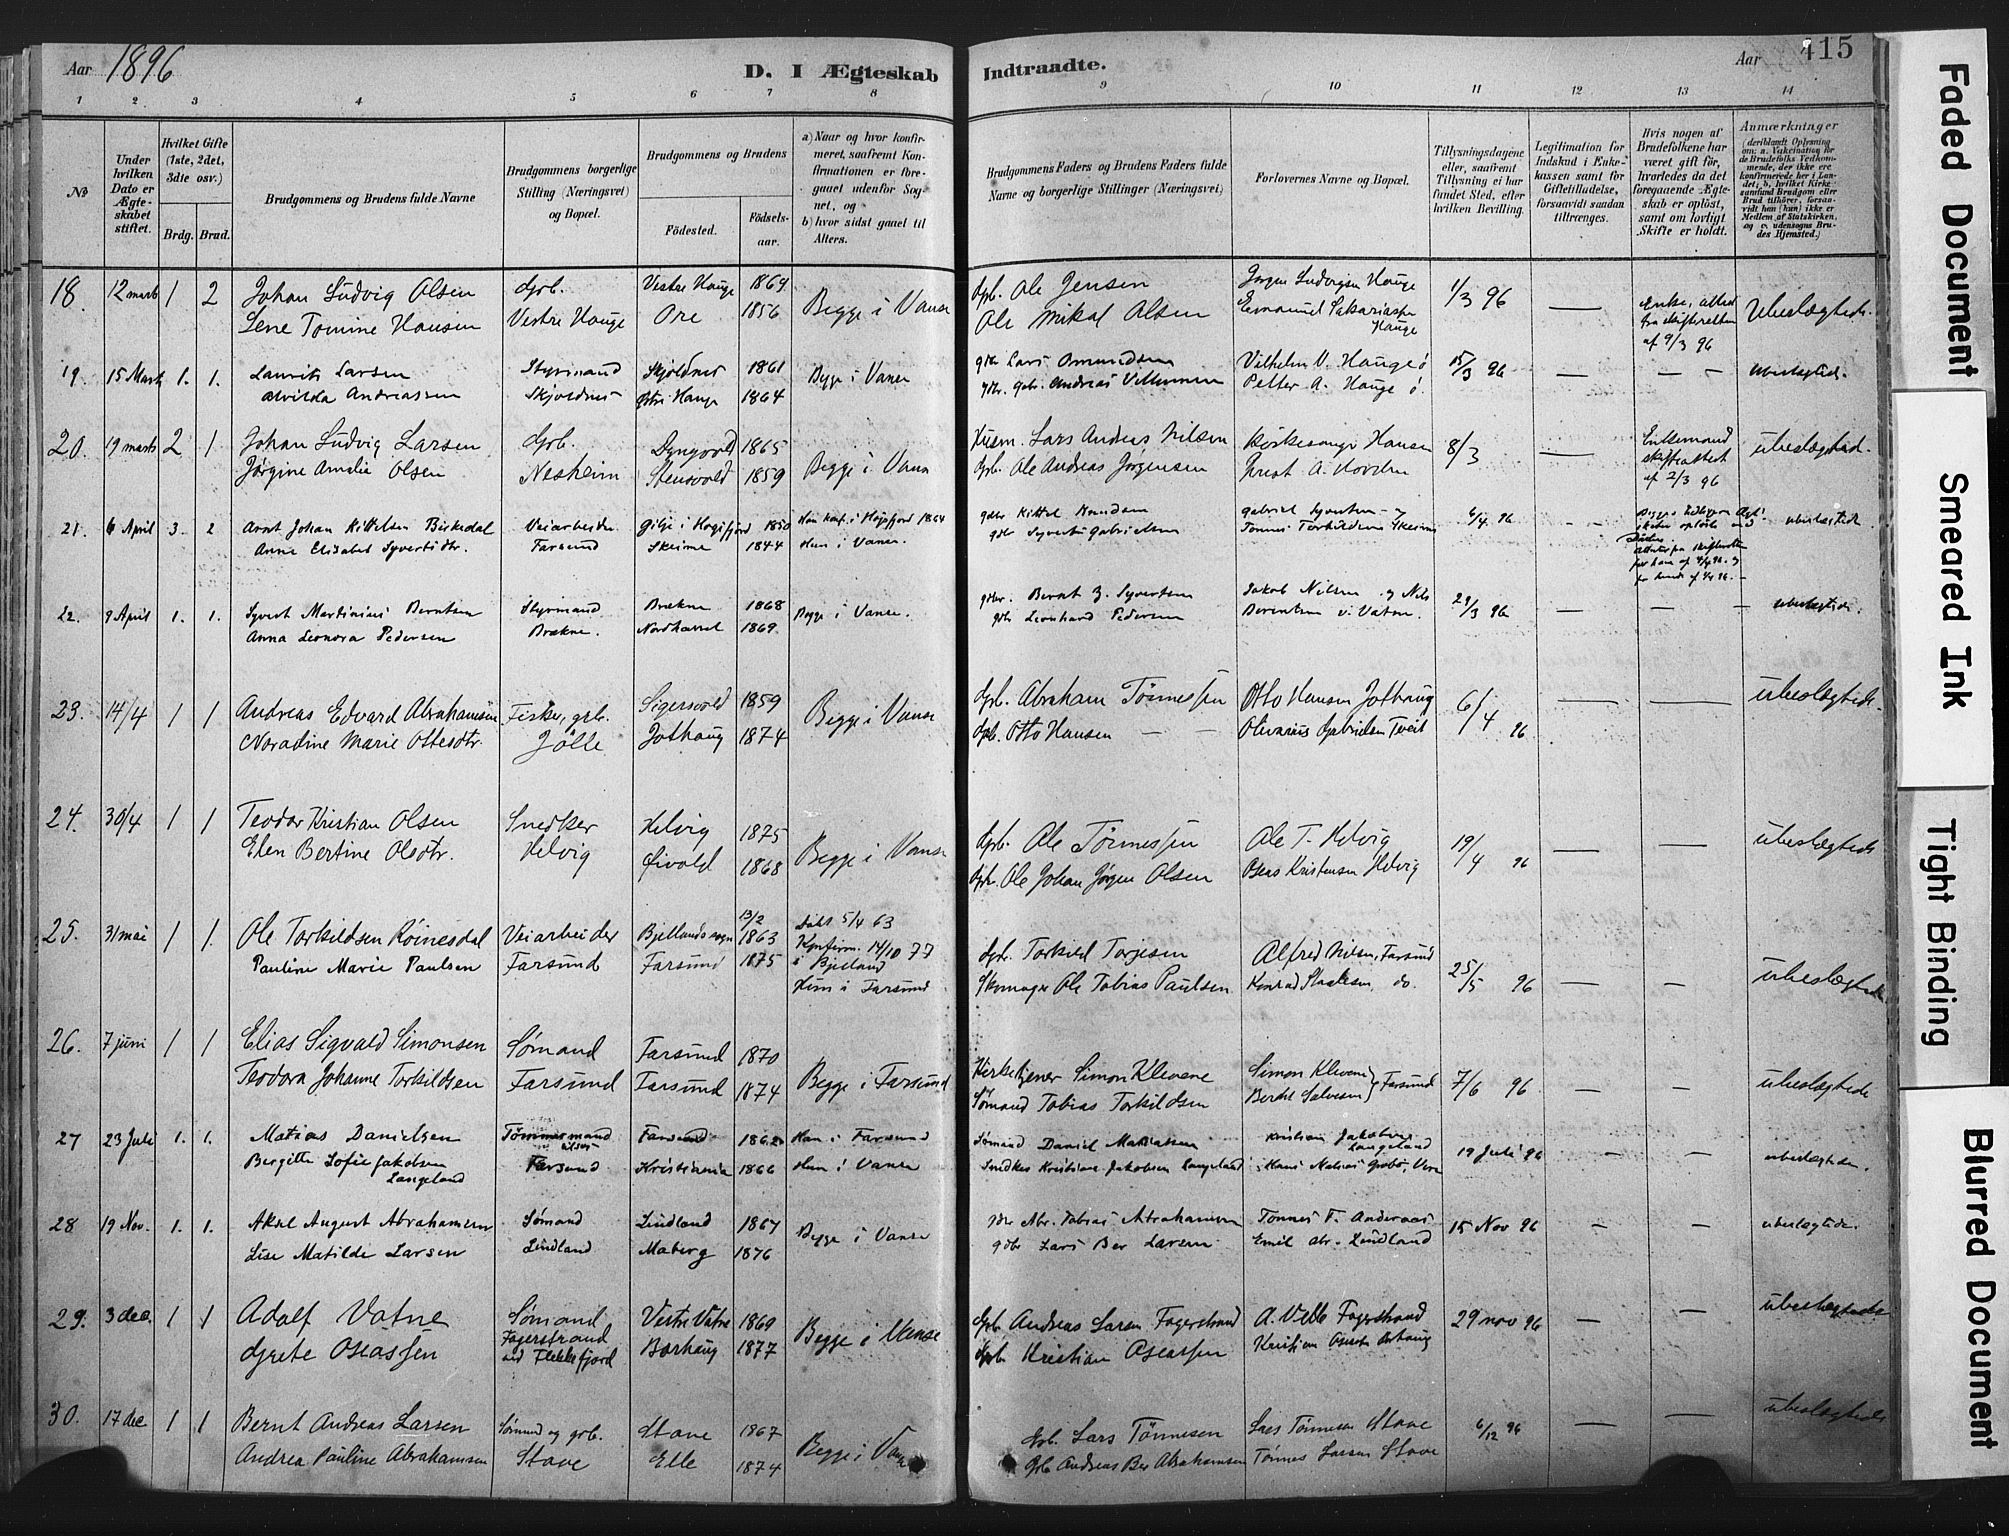 Aar 1896
D. I Ægteskab Indtraadte.
Aar 415
1 2 3 4 5 6 7 8 9 10 11 12 13 14
No
Under hvilken Dato er Ægteskabet stiftet.
Hvilket Gifte (1ste, 2det, 3die osv.)
Brdg. Brud.
Brudgommens og Brudens fulde Navne
Brudgommens borgerlige Stilling (Næringsvei) og Bopæl.
Brudgommens og Brudens
Födested. Födselsaar.
a) Naar og hvor konfirmeret, saafremt Konfirmationen er foregaaet udenfor Sognet, og b) hvor sidst gaaet til Alters.
Brudgommens Faders og Brudens Faders fulde Navne og borgerlige Stillinger (Næringsvei)
Forlovernes Navne og Bopæl.
Tillysningsdagene eller, saafremt Tillysning ei har fundet Sted, efter hvilken Bevilling.
Legitimation for Indskud i Enkekassen samt for Giftetilladelse, forsaavidt saadan tiltrænges.
Hvis nogen af Brudefolkene har været gift för, hvorledes da det foregaaende Ægteskab er oplöst, samt om lovligt Skifte er holdt.
Anmærkninger
18. 12 marts 1 2 Johan Ludvig Olsen Grb. Vestre Hauge 1864 Begge i Vanse Grb. Ole Jensen Jørgen Ludvigsen Hauge 1/3 96 — Enke, attest Ubeslægtede.
Lene Tomine Hansen Vestre Hauge Ore 1856 Ole Mikal Olsen Emanuel Sakariassen Hauge fra skifteretten af 9/3 96
19. 15 Marts 1. 1. Laurits Larsen Styrmand Skjoldnes 1861 Begge i Vanse gbr Lars Omundsen Vilhelm V. Hauge ø 15/3 96 — — — ubeslægtede.
Alvilda Andreassen Skjoldnes Østre Hauge 1864 gbr. Andreas Petter A. Hauge ø.
20. 19 marts 2 1 Johan Ludvig Larsen Grb. Dyngvold 1865 Begge i Vanse Husm. Lars Andreas Nilsen Kirkesanger Hansen 8/3 — Enkemand ubeslægtede.
Jørgine Amalie Olsen Nesheim Stensvold 1859 Grb. Ole Andreas Jørgensen Prest A. Hovden skifteattest af 2/3 96
21. 6 April 3. 2 Arnt Johan Kittelsen Birkedal Veiarbeider Gilje i Høgsfjord 1850 Han konf. i Høgsfjord 1864 gbr Kittel Knudsen Gabriel Syvertsen og 6/4 96 — — ubeslægtede
Anne Elisabet Syvertsdtr. Farsund Skeime 1844 Hun i Vanse. gbr Syvert Gabrielsen Tønnes Torkildsen Skeime
22. 9 April 1. 1. Syvert Martinius Berntsen Styrmand Brekne 1868 Begge i Vanse. gbr. Bernt Z. Syvertsen Jakob Nilsen og Nils 29/3 96 — — — ubeslægtede.
Anna Leonora Pedersen Brekne. Nordhassel 1869. gbr Leonhard Pedersen Berentsen v. Vatne
23. 14/4 1 1 Andreas Edvard Abrahamsen Fisker, grb. Sigersvold 1859 Begge i Vanse Grb. Abraham Tønnessen Otto Hansen Jøthaug 6/4 96 — — ubeslægtede.
Noradine Marie Ottesdtr. Jølle Jøthaug 1874 Grb. Otto Hansen — — Olivarius Gabrielsen Tveit
24. 30/4 1 1 Teodor Kristian Olsen Snedker Helvig 1875 Begge i Vanse Grb. Ole Tønnessen Ole T. Helvig 19/4 96 — — ubeslægtede
Elen Bertine Olsdtr. Helvig Øivold 1868 Gbr. Ole Johan Jørgen Olsen Oseas Kristensen Helvig
25. 31 mai 1 1. Ole Torkildsen Røinesdal Veiarbeider Bjellands sogn 13/2 1863 Døbt 5/4 63 Konfirm. 14/10 77 i Bjelland Grb. Torkild Torjesen Alfred Nilsen, Farsund 25/5 96 — — ubeslægtede
Pauline Marie Paulsen Farsund Farsund 1875 Hun i Farsund Skomager Ole Tobias Paulsen Konrad Staalesen, do.
26. 7 juni 1 1 Elias Sigvald Simonsen Sømand Farsund 1870 Begge i Farsund Kirketjener Simon Klevene Simon Klevene } Farsund 7/6 96 — — ubeslægtede
Teodora Johanne Torkildsen Farsund Farsund 1874 Sømand Tobias Torkildsen Bertel Salvesen
27 23 Juli 1. 1. Matias Danielsen Tømmermand Farsund 1862 Han i Farsund Sømand Daniel Matiassen Kristian Jakobsen Langeland 19 Juli 96 — — ubeslægtede.
Bergitte Sofie Jakobsen Langeland Farsund Kristiania 1866 Hun i Vanse Snedker Kristian Jakobsen Langeland
28 19 Nov. 1. 1. Aksel August Abrahamsen Sømand Lindland 1867 Begge i Vanse gbr Abr. Tobias Abrahamsen Tønnes T. Andersaas 15 Nov 96 — — ubeslægtede.
Lise Matilde Larsen Lindland Maberg 1876 gbr Lars Ber Larsen Emil Abr. Lindland
29. 3 dec. 1 1 Adolf Vatne Sømand Vestre Vatne 1869 Begge i Vanse Grb. Andreas Larsen Fagerstrand A. Fagerstrand 29 nov 96 — — ubeslægtede
Grete Oseassen Fagerstrand ved Flekkefjord Borhaug 1877 Grb. Kristian Oseassen Kristian Oseassen Borhaug
30. 17 dec 1 1 Bernt Andreas Larsen Sømand og grb. Stave 1867 Begge i Vanse Grb. Lars Tønnesen Lars Tønnesen Stave 6/12 96 — — ubeslægtede
Andrea Pauline Abrahamsen Stave Elle 1874 Grb Andreas Ber Abrahamsen Tønnes Larsen Stave
Faded Document
Smeared Ink
Tight Binding
Blurred Document